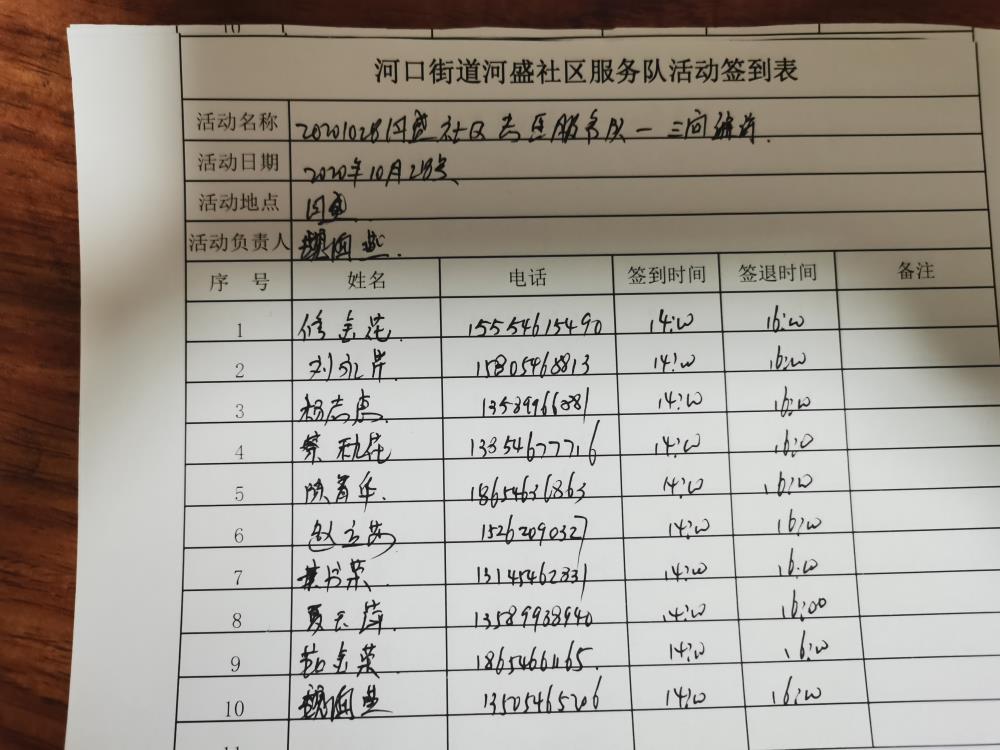 10
河口街道河盛社区服务队活动签到表
活动名称 20201028河盛社区志愿服务队一三间
活动日期 2020年10月28号
活动地点 河盛
活动负责人 魏向
序 号 姓名 电话 签到时间 签退时间 备注
1 修金花 15554615490 14:00 16:00
2 刘 15805468813 14:00 16:00
3 杨志 13589966881 14:00 16:00
4 蔡秋花 13354677716 14:00 16:00
5 陈 华 18654636863 14:00 16:00
6 赵 15262090327 14:00 16:00
7 荣 13145462831 14:00 16:00
8 夏 萍 13589938940 14:00 16:00
9 金荣 14:00 16:00
10 魏向 13505465206 14:00 16:00